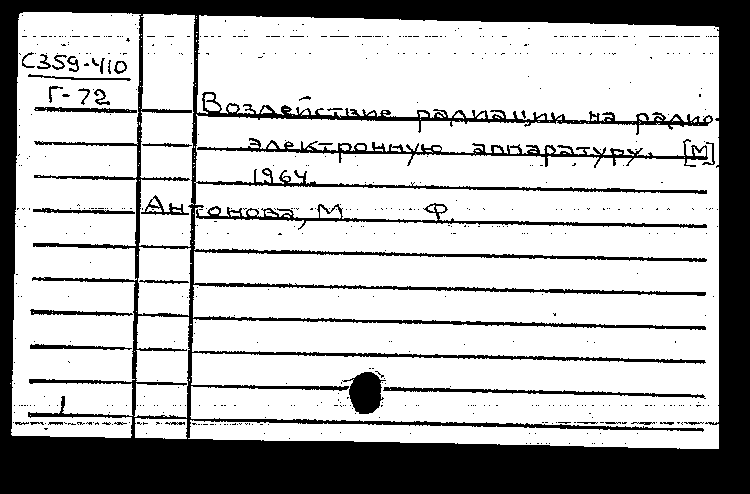 С359-410
Г-72
Воздействие радиации на радио-
электронную аппаратуру. [М]
1964.
Антонова, М Ф.
1